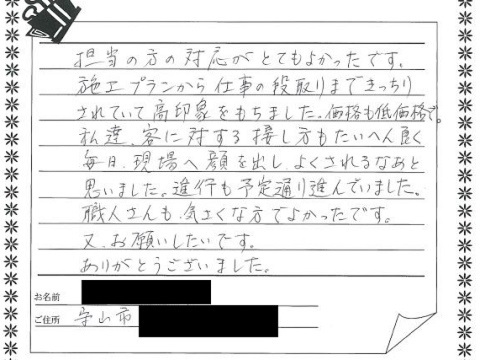 担当の方の対応がとてもよかったです。
施工プランから仕事の段取りまできっちり
されていて高印象をもちました。価格も低価格で。
私達、客に対する接し方もたいへん良く
毎日、現場へ顔を出し、よくされるなあと
思いました。進行も予定通り進んでいました。
職人さんも、気さくな方でよかったです。
又、お願いしたいです。
ありがとうございました。
お名前
ご住所 守山市